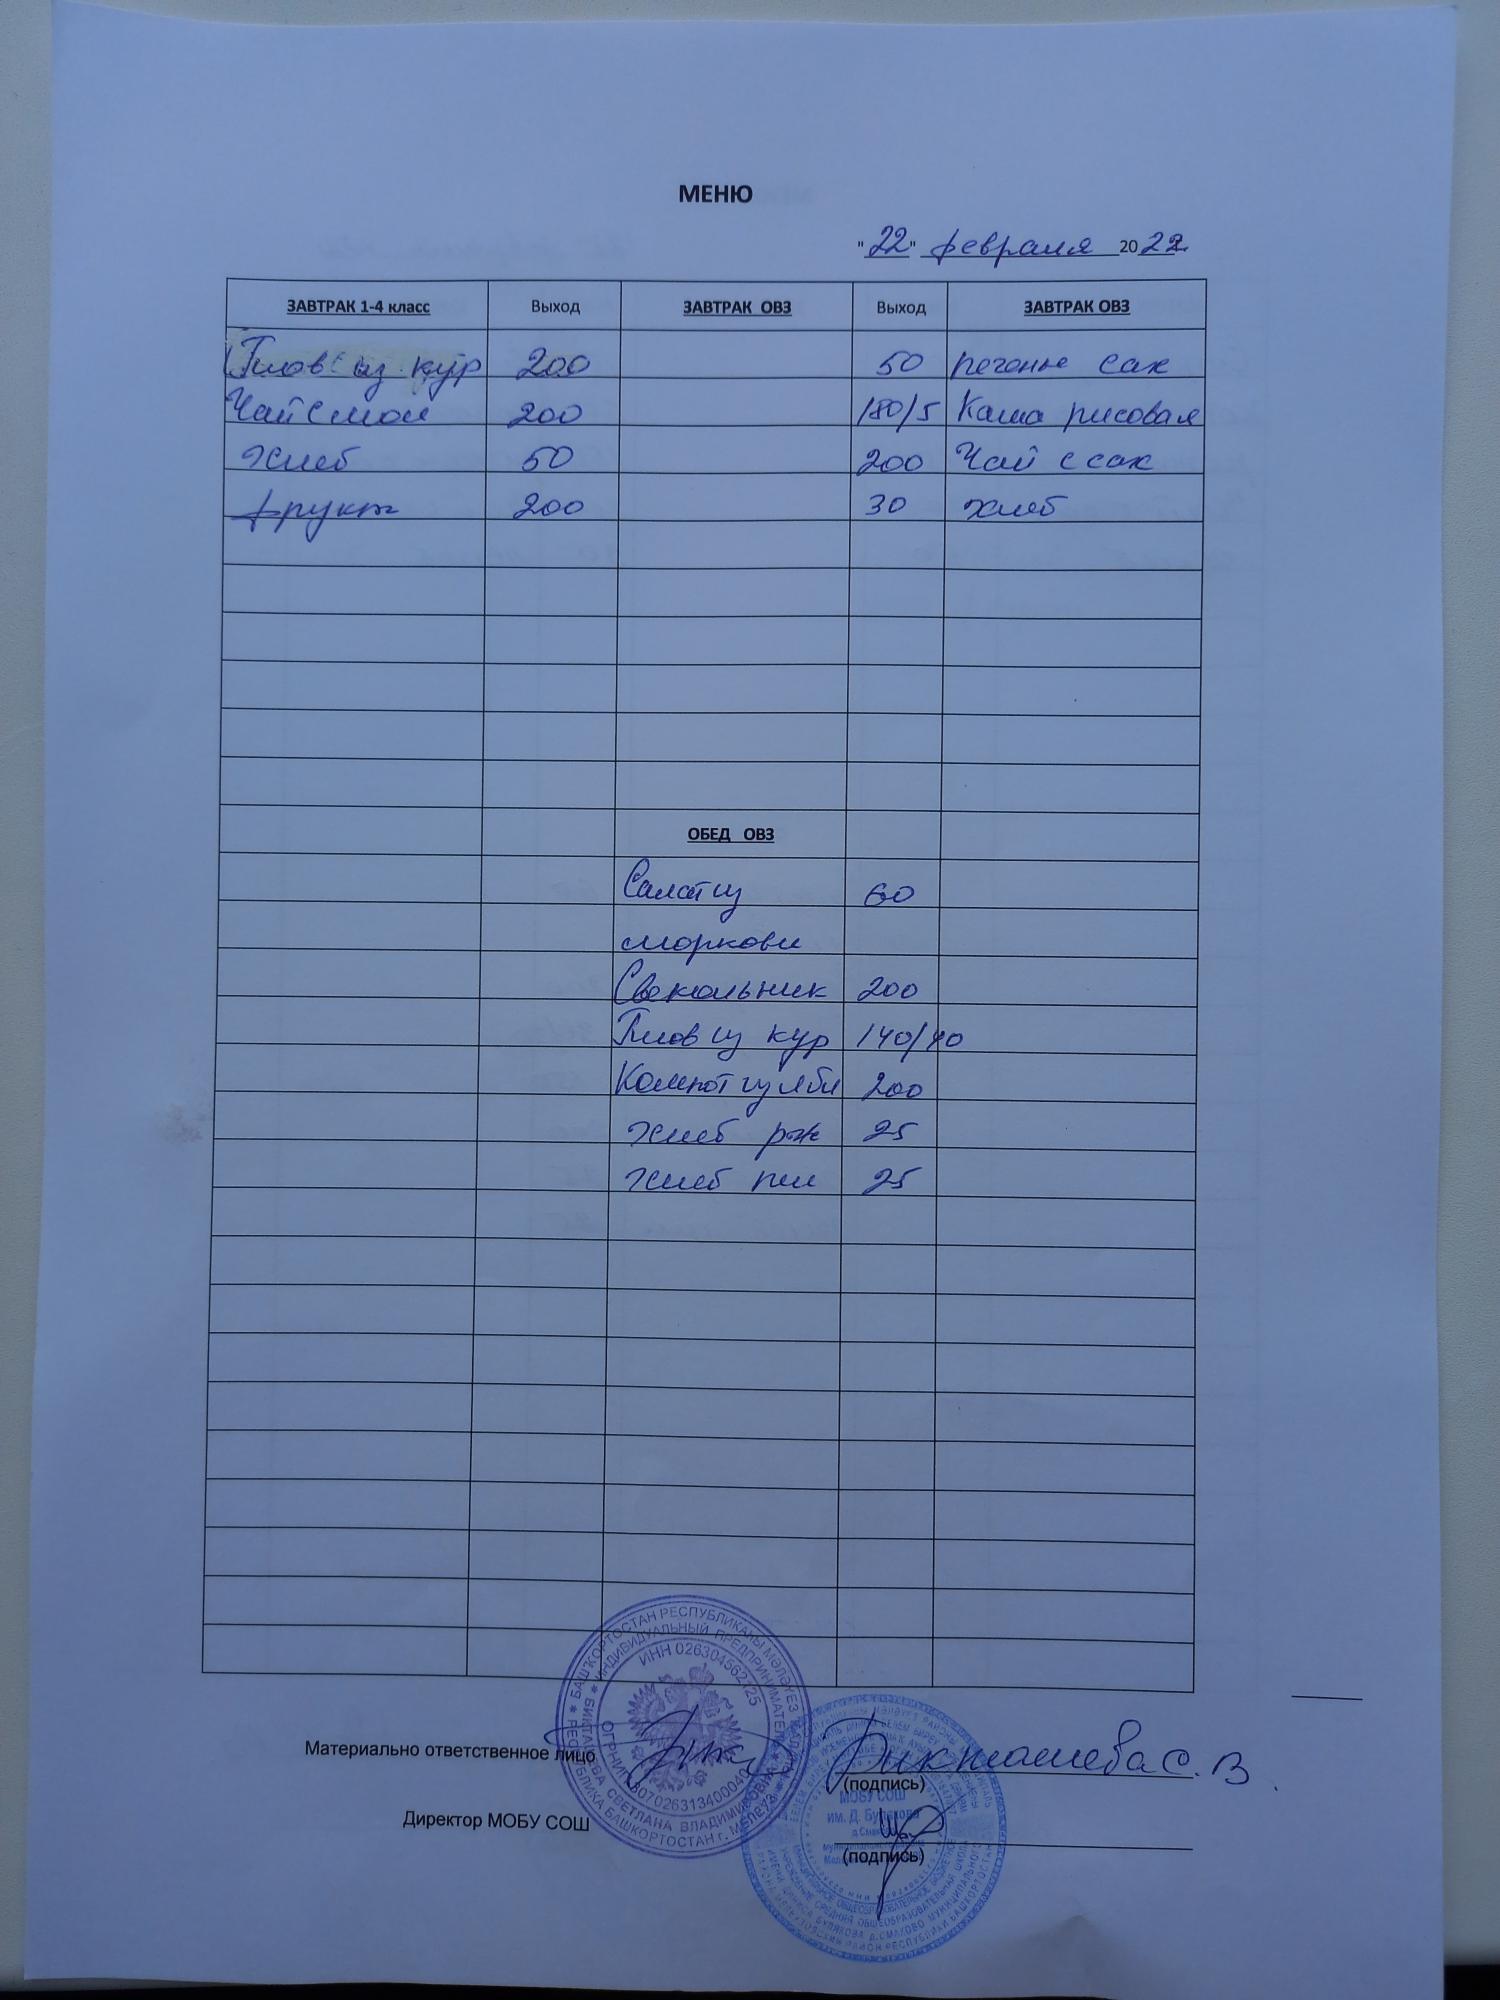 МЕНЮ
"22" февраля 2022
ЗАВТРАК 1-4 класс Выход ЗАВТРАК ОВЗ Выход ЗАВТРАК ОВЗ
Плов из кур 200 50 печенье сах
Чай с мол 200 180/5 Каша рисовая
Хлеб 50 200 Чай с сах
фрукт 200 30 хлеб
ОБЕД ОВЗ
Салат из 60
моркови
Свекольник 200
Плов из кур 140/40
Компот из ябл 200
хлеб рж 25
хлеб пш 25
Материально ответственное лицо Бикташева С. В.
(подпись)
Директор МОБУ СОШ
(подпись)
БАШҠОРТОСТАН РЕСПУБЛИКАҺЫ МӘЛӘҮЕЗ
ИНДИВИДУАЛЬНЫЙ ПРЕДПРИНИМАТЕЛЬ
ИНН 026304562125
СВЕТЛАНА ВЛАДИМИРОВНА
РЕСПУБЛИКА БАШКОРТОСТАН г.
МОБУ СОШ
им. Д. Булякова